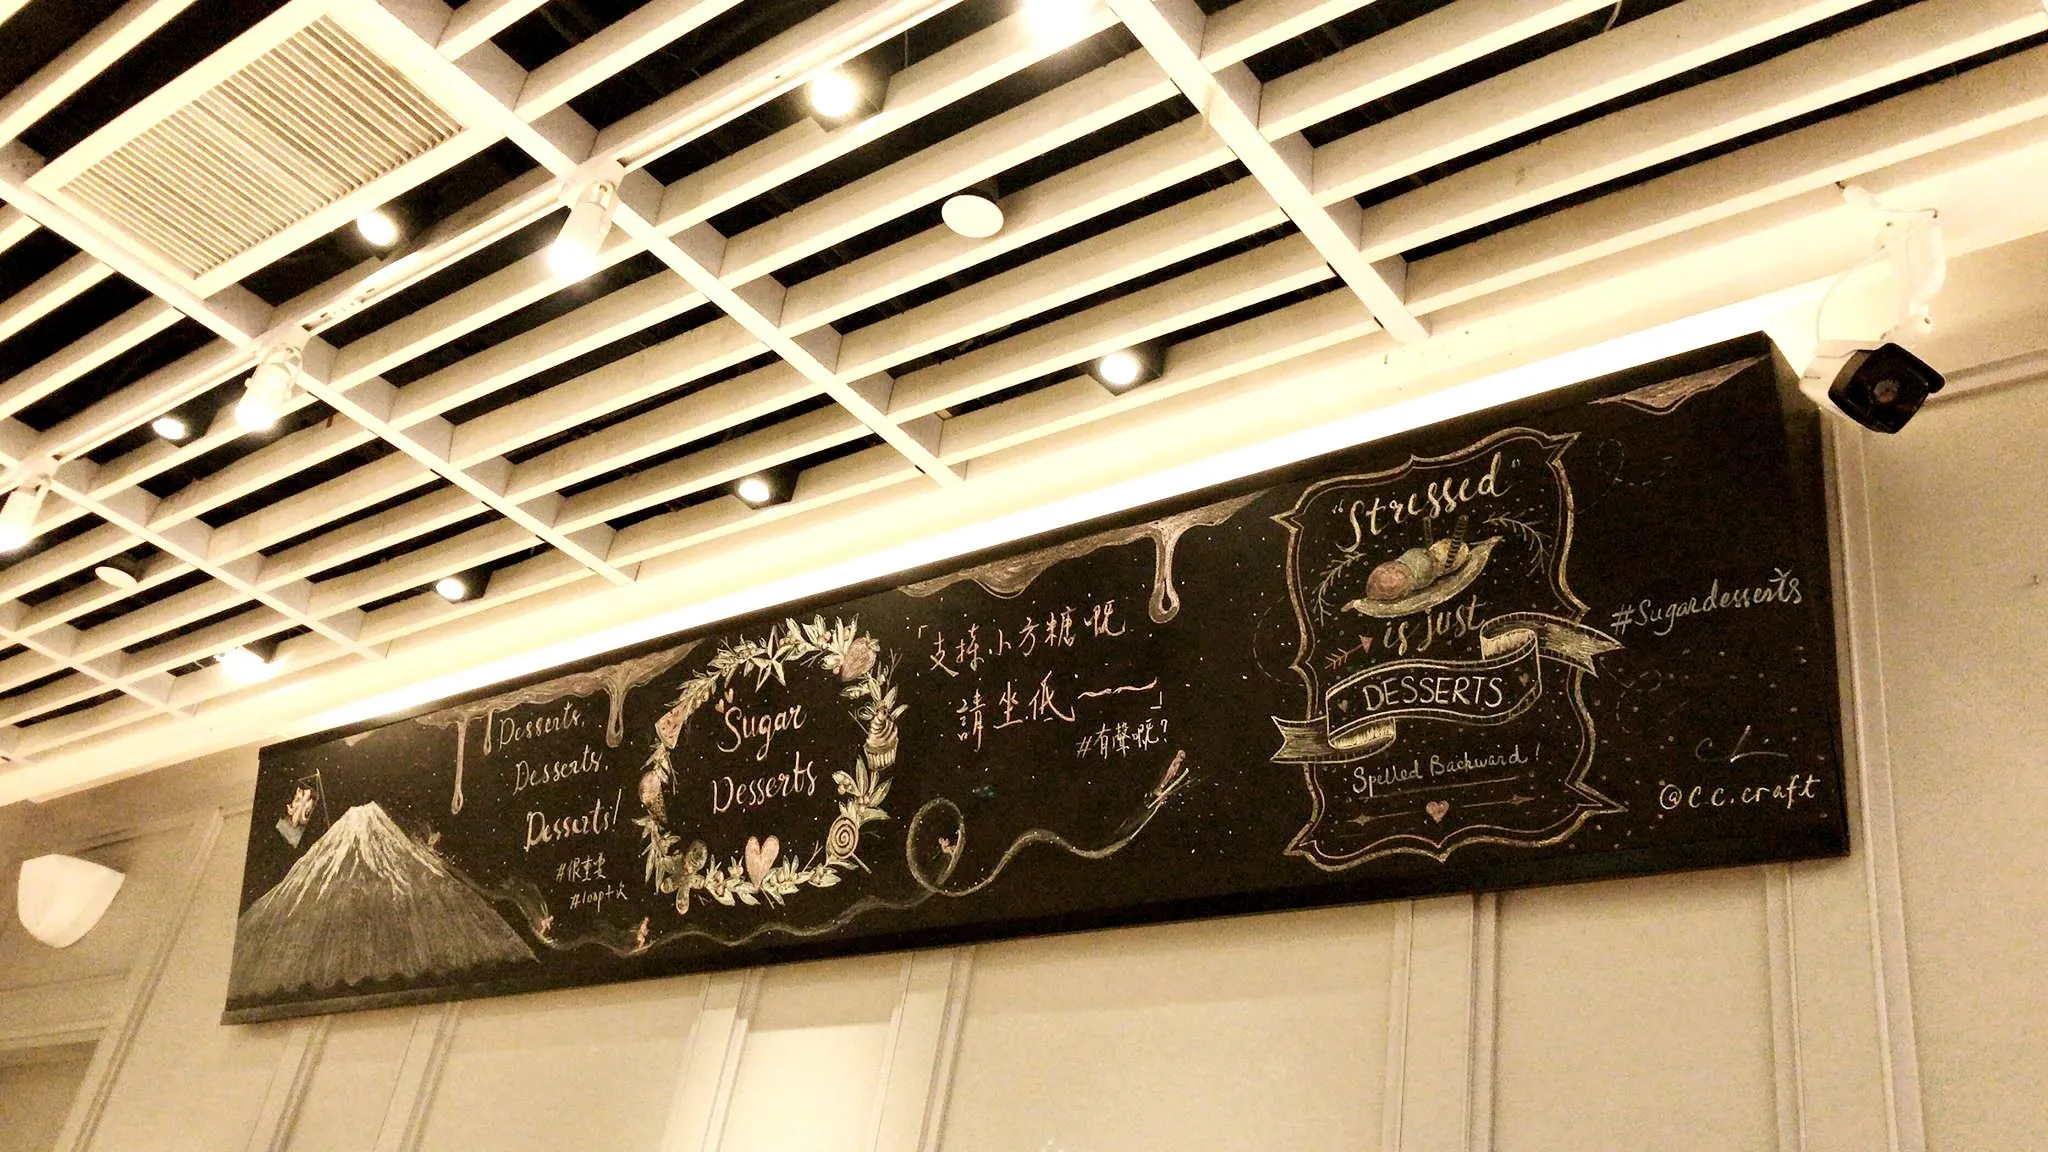 Desserts,
Desserts,
Desserts!
#很重要
#loop十次
Sugar
Desserts
「支持小方糖嘅
請坐低~~」
#有聲嘅?
"Stressed"
is just
DESSERTS
Spelled Backward!
#Sugardesserts
@c c.craft